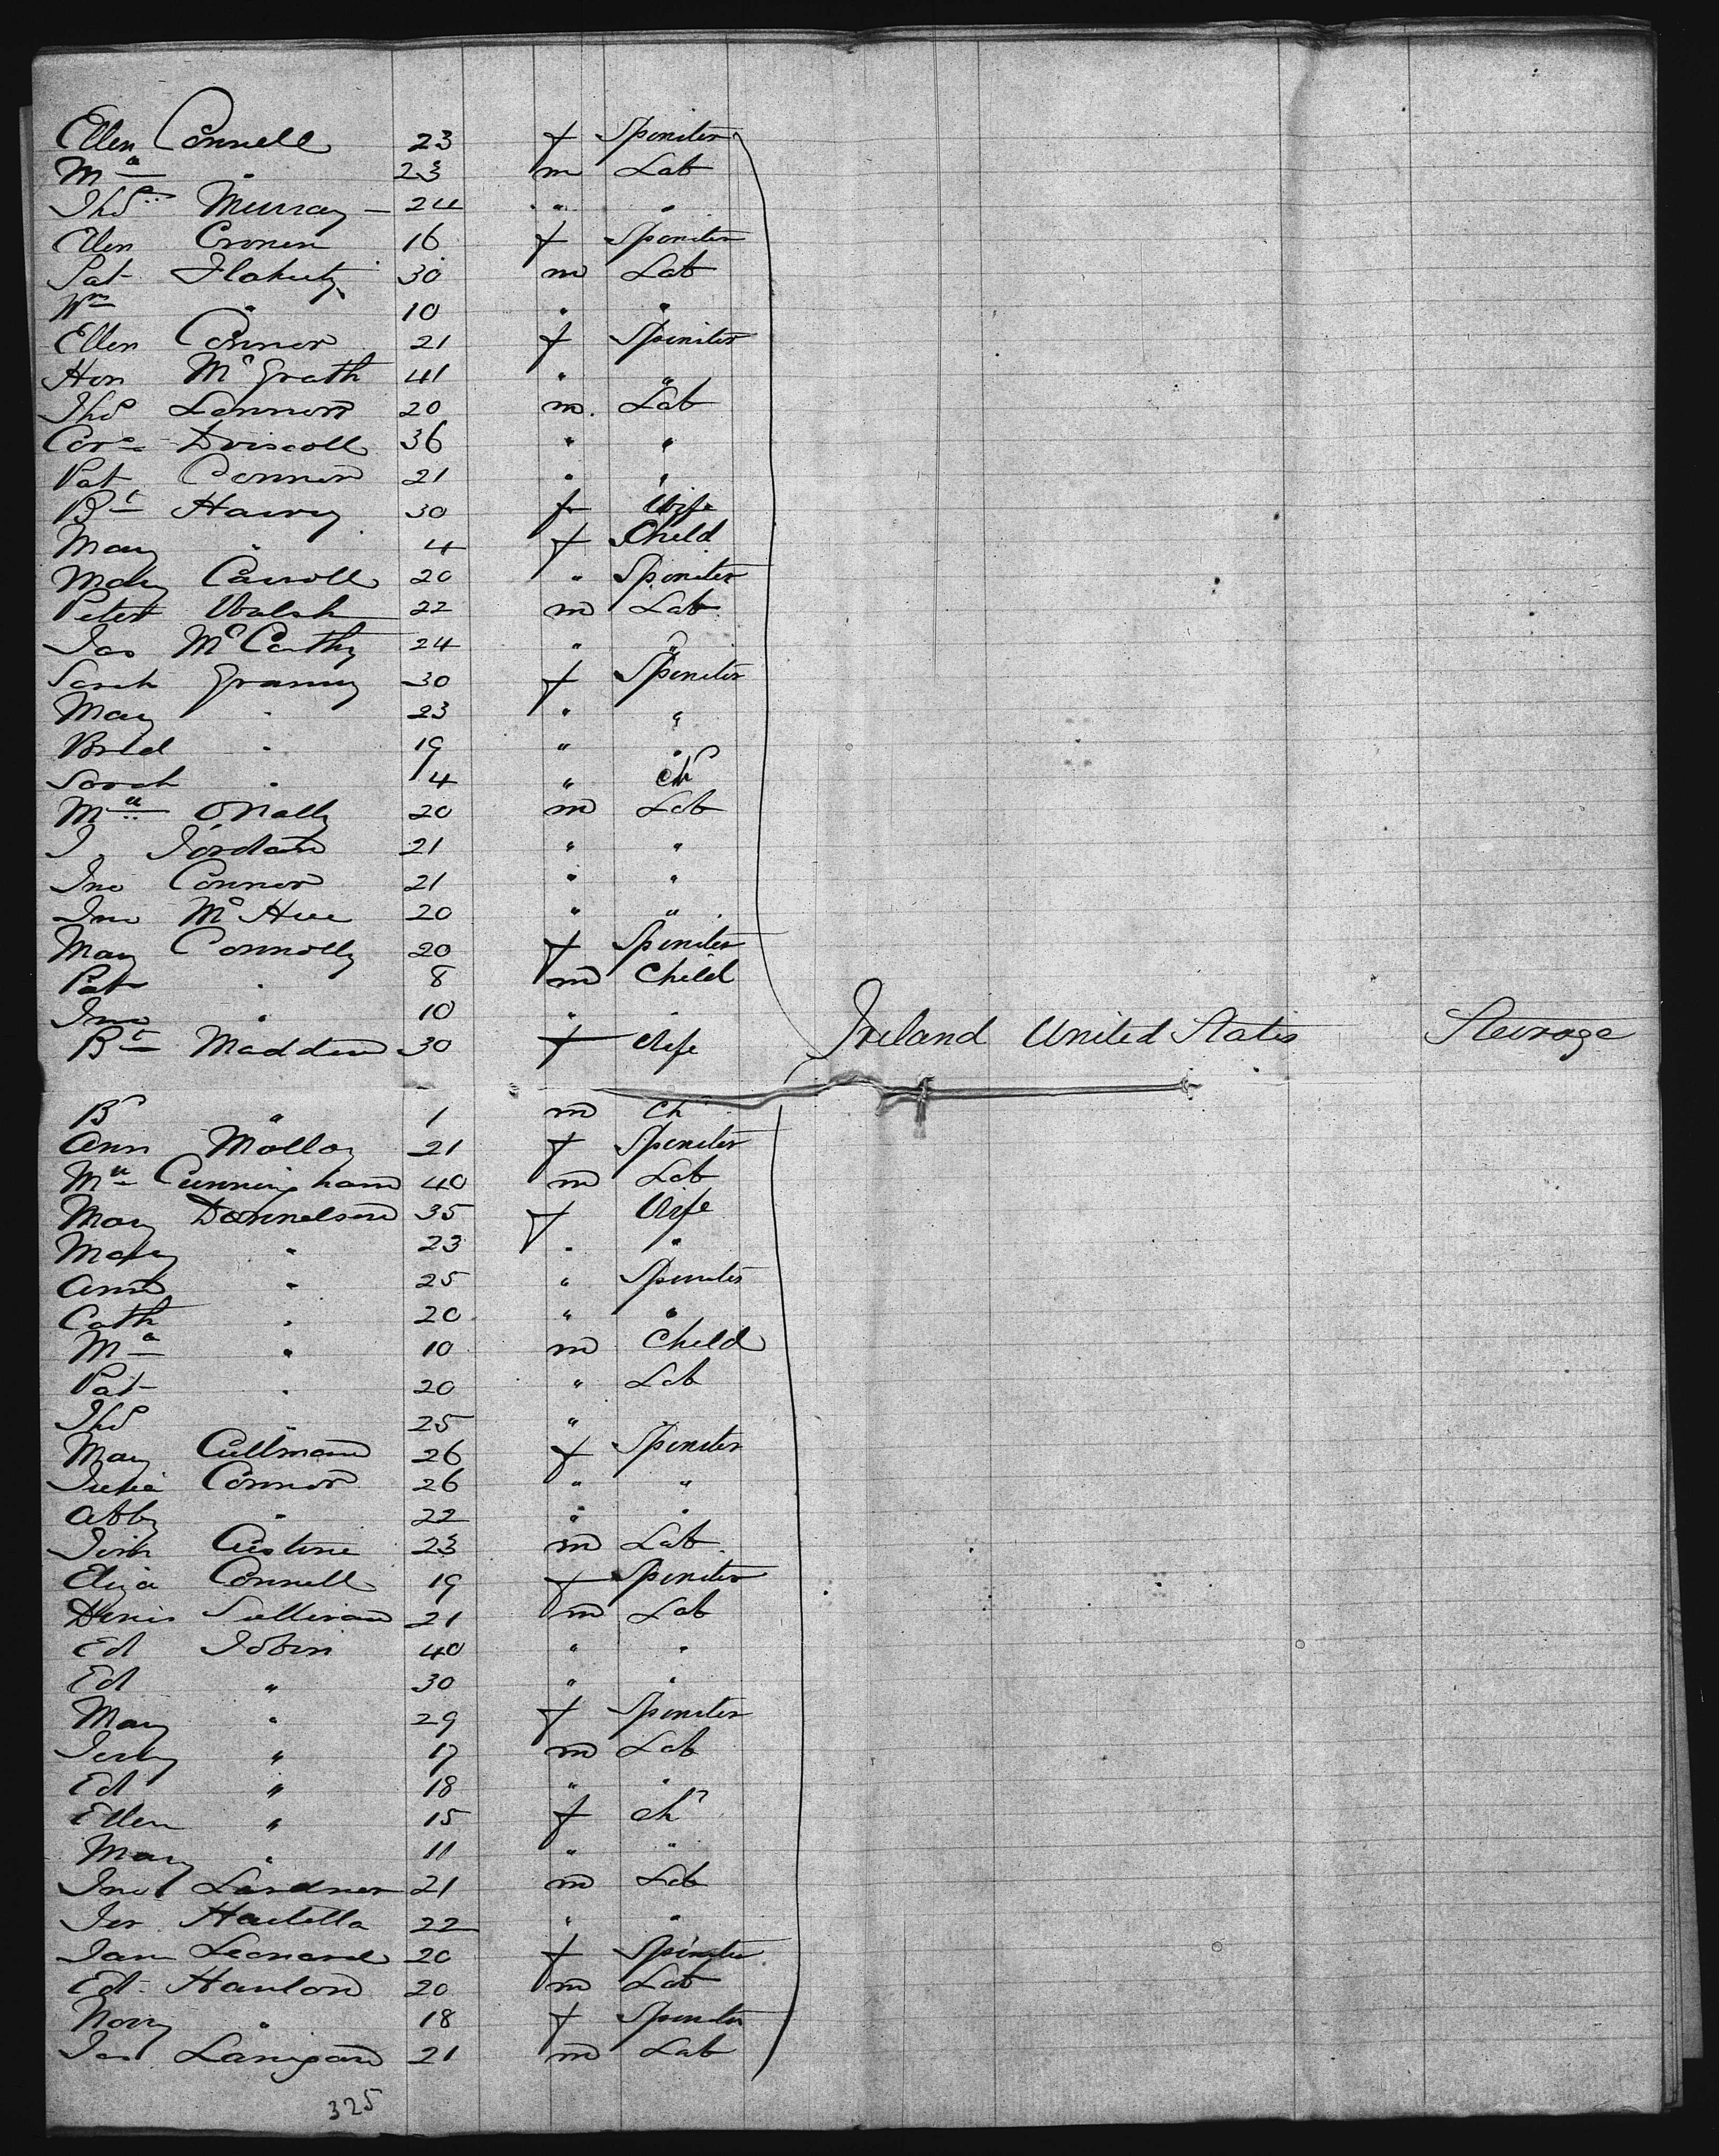 Ellen Connell 23 f Spinster
Ml " 23 m Lab
Thos Murray 24 " "
Ellen Cronin 16 f Spinster
Pat Flahuty 30 m Lab
Wm " 10 " "
Ellen Connor 21 f Spinster
Hon McGrath 41 " "
Thos Lennon 20 m. Lab
Cors Driscoll 36 " "
Pat Connor 21 " "
Bt 30 f Wife
Mary " 4 f Child
Mary Carroll 20 " Spinster
Peter Walsh 22 m Lab
Jas McCarthy 24 " "
Sarah Granny 30 f Spinster
Mary " 23 " "
Brid " 19 " "
Sarah " 4 " Ch
Ml O'Nally 20 m Lab
J. Jordan 21 " "
Jno Connor 21 " "
Jno McHue 20 " "
Mary Connolly 20 f Spinster
Pat " 8 m Child
Jno " 10 " "
Bt Madden 30 f Wife Ireland United States Steerage
B " 1 m Ch
Ann Molloy 21 f Spinster
Ml Cunningham 40 m Lab
Mary Donnelson 35 f Wife
Mary " 23 " "
Ann " 25 " Spinster
Cath " 20 " "
Ml " 10 m Child
Pat " 20 " Lab
Thos " 25 "
Mary Cullman 26 f Spinster
Julia Connor 26 " "
Abby " 22 " "
Tim 23 m Lab
Eliza Connell 19 f Spinster
Denis Sullivan 21 m Lab
Ed Tobin 40 " "
Ed " 30 " "
Mary " 29 f Spinster
" 17 m Lab
Ed " 18 " "
Ellen " 15 f Ch
Mary " 11 " "
Jno Lardner 21 m Lab
Jer 22 " "
Jane Leonard 20 f Spinster
Ed Hanlon 20 m Lab
Nory " 18 f Spinster
Jas Lanigan 21 m Lab
325